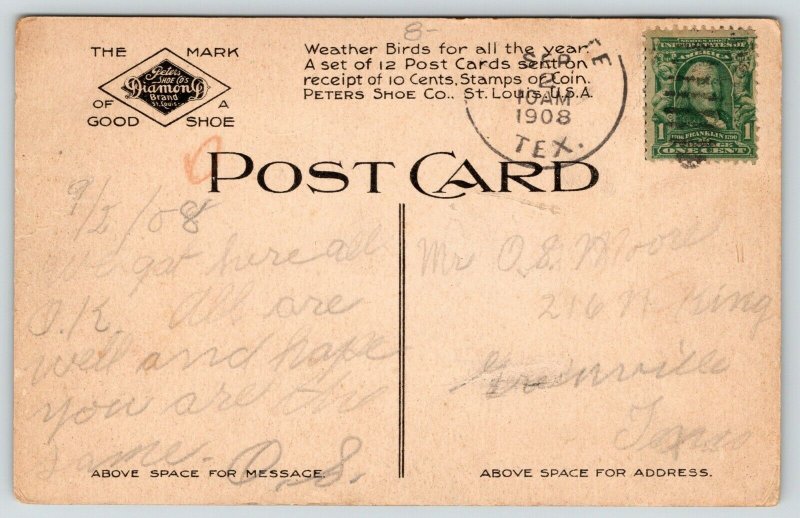 8-
THE MARK
Peters
SHOE CO'S
Diamond
Brand
St. Louis
OF A
GOOD SHOE
Weather Birds for all the year.
A set of 12 Post Cards sent on
receipt of 10 Cents, Stamps or Coin.
PETERS SHOE CO., ST. LOUIS, U.S.A.
SEP
2
10 AM
1908
TEX.
UNITED STATES OF
AMERICA
1706 FRANKLIN 1790
1 POSTAGE 1
ONE CENT
POST CARD
9/2/08
got here all
O.K. All are
well and hope
you are
same. O.S.
Mr O.S. Moore
216 N King
Greenville
Texas
ABOVE SPACE FOR MESSAGE.
ABOVE SPACE FOR ADDRESS.